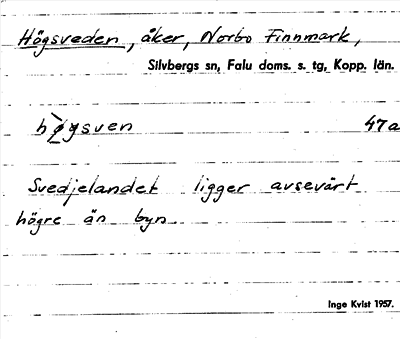 Högsveden, åker, Norbo Finnmark,
Silvbergs sn, Falu doms. s. tg, Kopp. län.
hø̀gsven 47a
Svedjelandet ligger avsevärt
högre än byn.
Inge Kvist 1957.